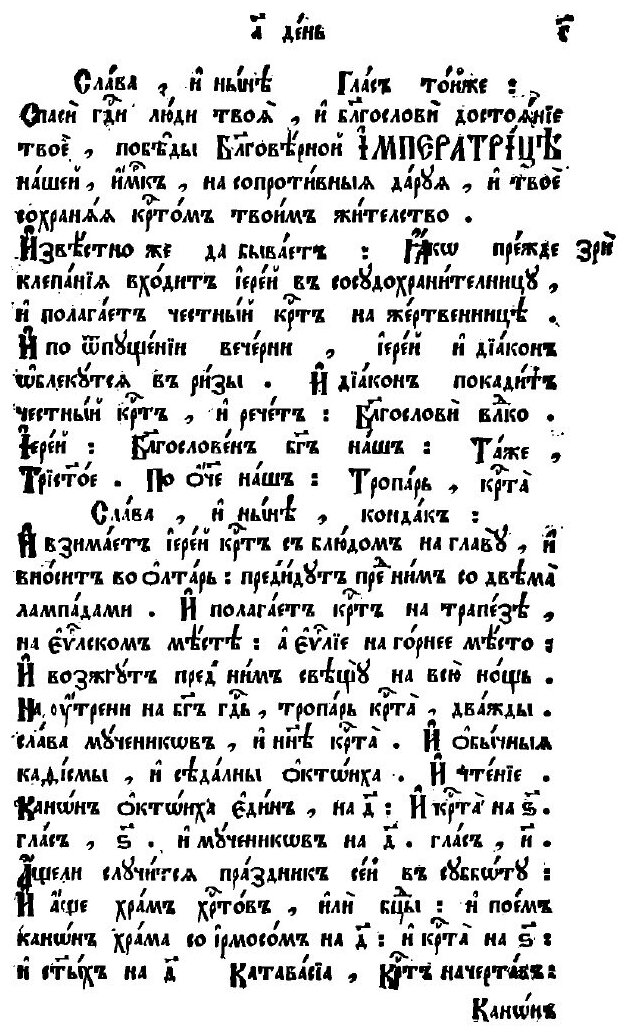 а҃ де́нь ѕ҃
Сла́ва , и҆ ны́нѣ Гла́съ то́йже :
Спасѝ гдⷭ҇и лю́ди твоѧ̑ , и҆ бл҃гословѝ достоѧ́нїе
твоѐ , побѣ́ды Бл҃говѣ́рной І҆МПЕРАТРІ́ЦѢ
на́шей , и҆́мⷬ҇къ , на сопроти́вныѧ да́руѧ , и҆ твоѐ
сохранѧ́ѧ крⷭ҇то́мъ твои́мъ жи́телство .
И҆звѣ́стно же да быва́етъ : Ꙗ҆́кѡ пре́жде зрѝ
клепа́нїѧ вхо́дитъ і҆ере́й въ сосудохрани́телницу ,
и҆ полага́етъ честны́й крⷭ҇тъ на же́ртвенницѣ .
И҆ по ѿпуще́нїи вече́рни , і҆ере́й и҆ дїа́конъ
ѡ҆блеку́тсѧ въ ри́зы . И҆ дїа́конъ покади́тъ
честны́й крⷭ҇тъ , и҆ рече́тъ : Бл҃гословѝ влⷣко .
І҆ере́й : Бл҃гослове́нъ бг҃ъ на́шъ : Та́же ,
Трист҃о́е . По ѻ҆́ч҃е на́шъ : Тропа́рь , крⷭ҇та̀
Сла́ва , и҆ ны́нѣ , конда́къ :
И҆ взима́етъ і҆ере́й крⷭ҇тъ съ блю́домъ на главу̀ , и҆
вно́ситъ во ѻ҆лта́рь : преди́дутъ пред̾ ни́мъ со двѣма̀
лампа́дами . И҆ полага́етъ крⷭ҇тъ на трапе́зѣ ,
на є҆ѵⷢ҇лскомъ мѣ́стѣ : а҆ є҆ѵⷢ҇лїе на го́рнее мѣ́сто :
И҆ возжгу́тъ пред̾ ни́мъ свѣщу̀ на всю̀ но́щь .
На ᲂу҆́трени на бг҃ъ гдⷭ҇ь , тропа́рь крⷭ҇та̀ , два́жды .
сла́ва мч҃никѡвъ , и҆ нн҃ѣ крⷭ҇та̀ . И҆ ѻ҆бы́чныѧ
каѳі́смы , и҆ сѣда́лны ѻ҆ктѡ́иха . И҆ чте́нїе .
Канѡ́нъ ѻ҆ктѡ́иха є҆ди́нъ , на д҃ : И҆ крⷭ҇та̀ на ѕ҃ .
гла́съ , ѕ҃ . и҆ му́ченикѡвъ на д҃ . гла́съ , и҃ .
А҆́щели случи́тсѧ пра́здникъ се́й въ суббѡ́ту :
И҆ а҆́ще хра́мъ хрⷭ҇то́въ , и҆лѝ бц҃ы : и҆ пое́мъ
канѡ́нъ хра́ма со і҆рмосо́мъ на д҃ : и҆ крⷭ҇та̀ на ѕ҃ :
и҆ ст҃ы́хъ на д҃ Катава́сїа , Крⷭ҇тъ наче́ртавъ :
Канѡ́нъ